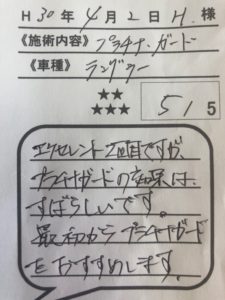 H 30年 4月 2日 H. 様
《施術内容》プラチナ・ガード
《車種》ラングラー
★★
★★★
5 / 5
エクセレント2回目ですが、
プラチナガードの効果は、
すばらしいです。
最初からプラチナガード
をおすすめします。